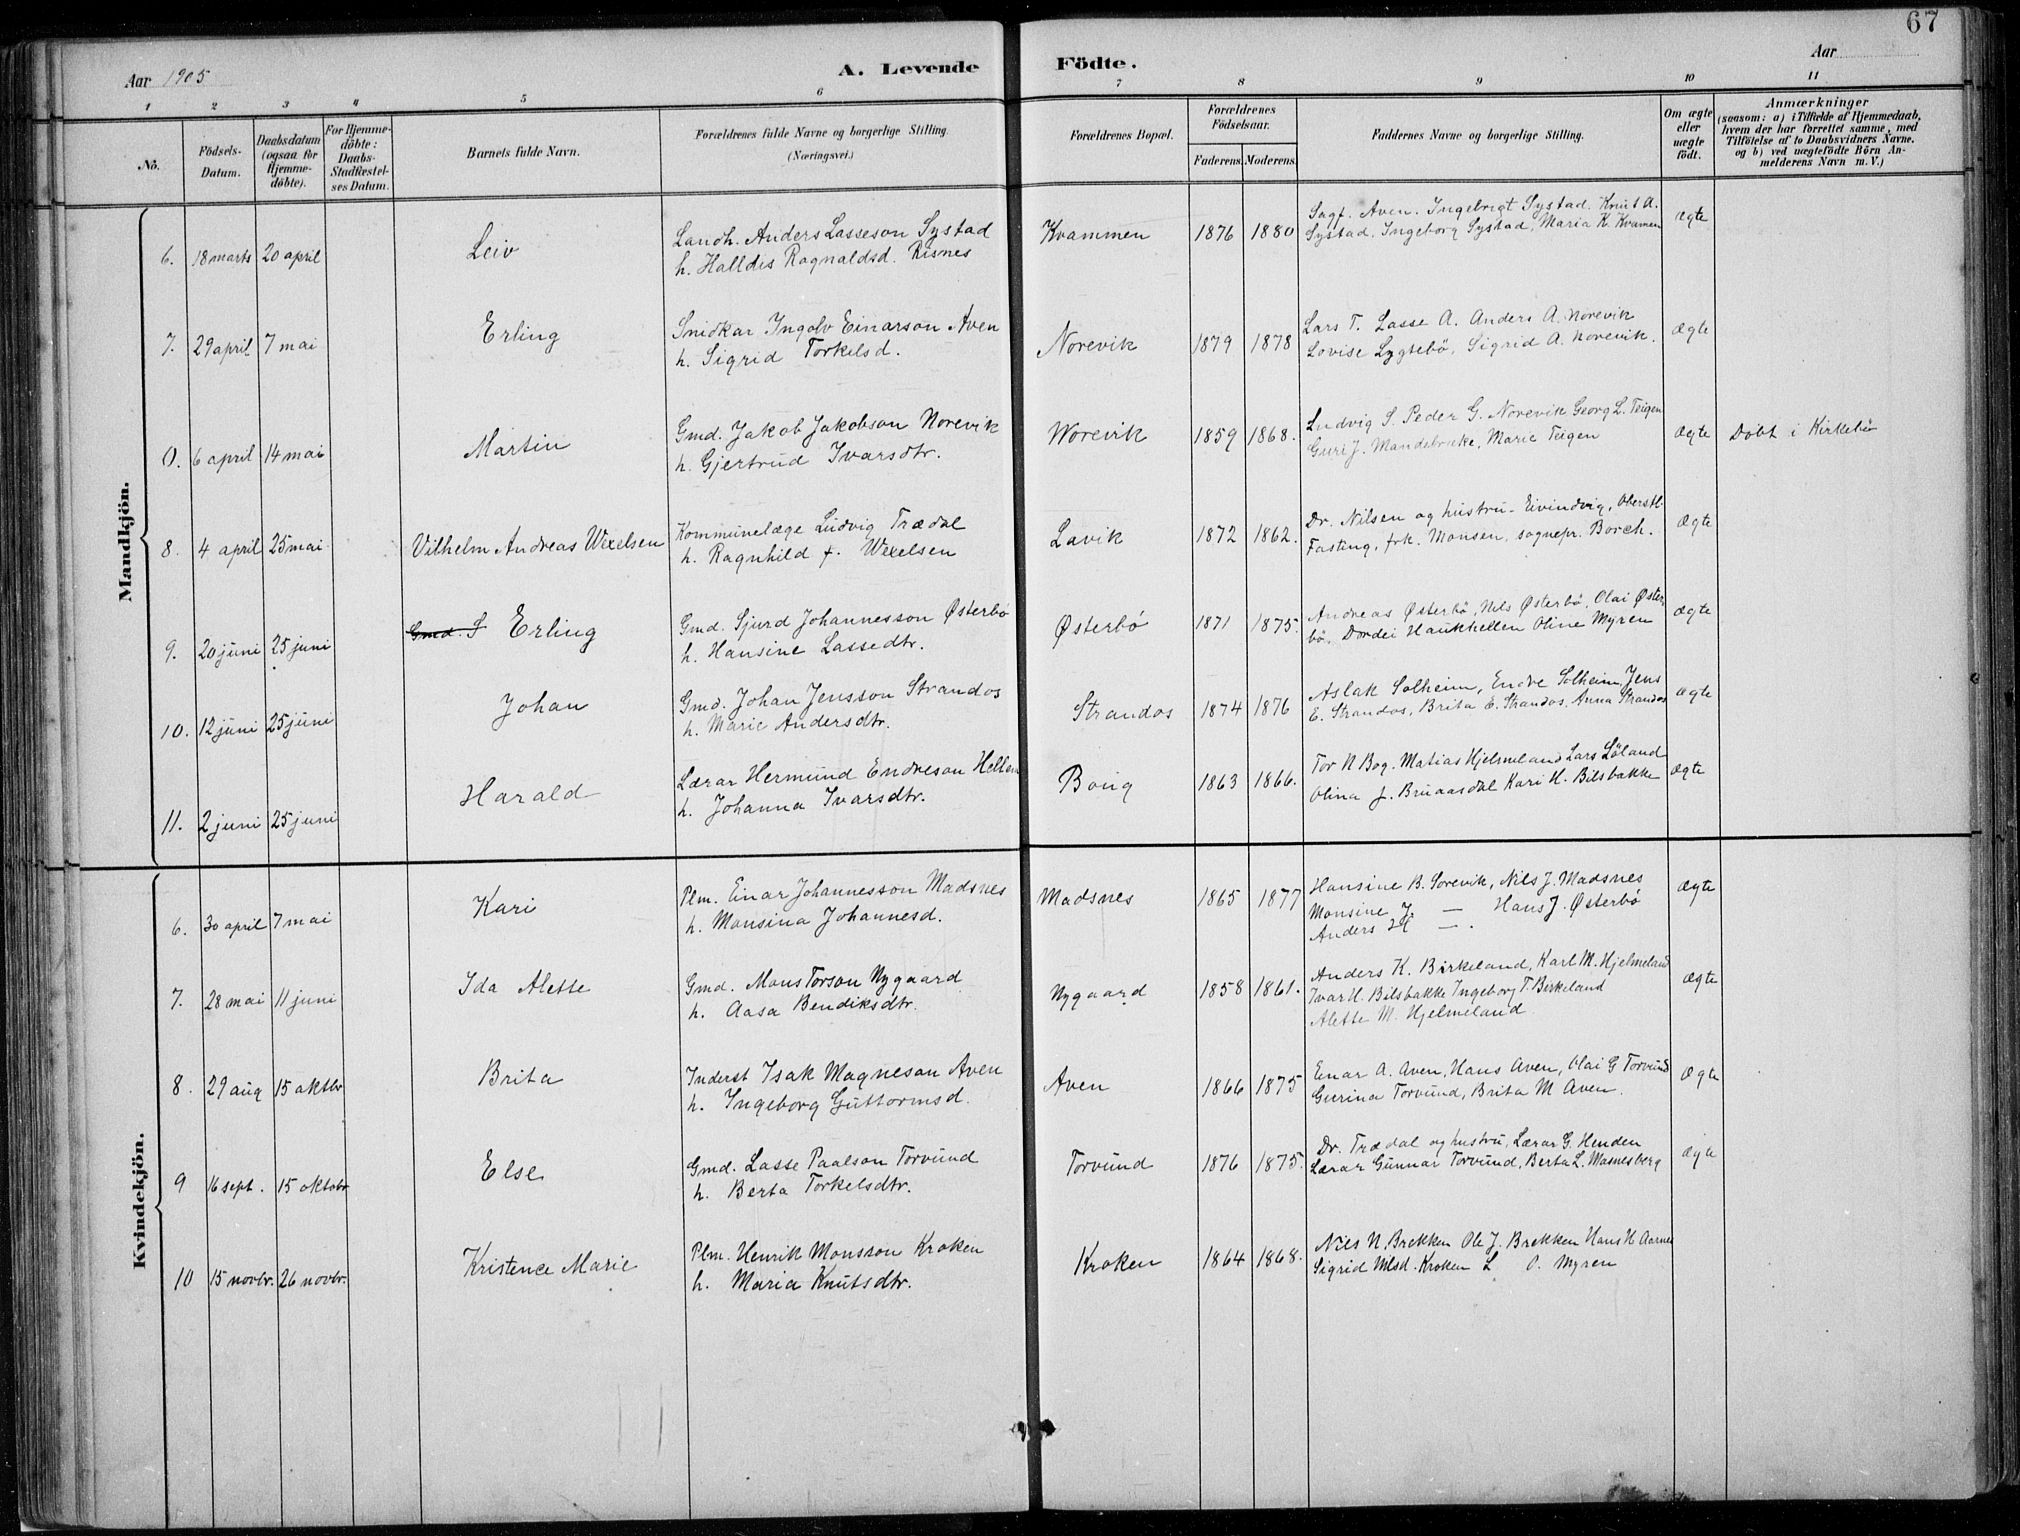 67
Aar 1905
A. Levende Födte.
Aar
1 2 3 4 5 6 7 8 9 10 11
No.
Födsels-Datum.
Daabsdatum (ogsaa for Hjemmedöbte).
For Hjemmedöbte: Daabs-Stadfæstelses Datum.
Barnets fulde Navn.
Forældrenes fulde Navne og borgerlige Stilling. (Næringsvei.)
Forældrenes Bopæl.
Forældrenes Födselsaar.
Faderens. Moderens.
Faddernes Navne og borgerlige Stilling.
Om ægte eller uægte födt.
Anmærkninger (saasom: a) i Tilfælde af Hjemmedaab, hvem der har forrettet samme, med Tilföielse af to Daabsvidners Navne. og b) ved uægtefödte Börn Anmelderens Navn m. V.)
Mandkjön.
6. 18 marts 20 april Leiv Landh. Anders Lasseson Systad Kvammen 1876 1880 Sagf. Aven. Ingebrigt Systad. Knut A. ægte
h. Halldis Ragnaldsd. Risnes Systad, Ingeborg Systad, Maria K. Kvamen
7. 29 april 7 mai Erling Snidkar Ingolv Einarson Aven Norevik 1879 1878 Lars T. Lasse A. Anders A. Norevik ægte
h. Sigrid Torkelsd. Lovise Lygtebö, Sigrid A. Norevik.
0. 6 april 14 mai Martin Gmd. Jakob Jakobson Norevik Norevik 1859 1868. Ludvig S. Peder G. Norevik Georg L. Teigen ægte Döbt i Kirkebö
h. Gjertrud Ivarsdtr. Guri J. Mandebrekke, Marie Teigen
8. 4 april 25 mai Vilhelm Andreas Wexelsen Kommunelæge Ludvig Trædal Lavik 1872 1862. Dr. Nilsen og hustru - Eivindvig, Oberstl. Ægte
h. Ragnhild f. Wexelsen Fasting, frk. Monsen, sognepr. Borch.
9. 20 juni 25 juni Gmd. S Erling Gmd. Sjurd Johannesson Østerbö Østerbö 1871 1875. Andreas Østerbö, Nils Østerbö, Olai Øster- ægte
h. Hansine Lassedtr. bö, Dordei Haukhellen Oline Myren
10. 12 juni 25 juni Johan Gmd. Johan Jensson Strandos Strandos 1874 1876 Aslak Solheim, Endre Solheim, Jens ægte
h. Marie Andersdtr. E. Strandos, Brita E. Strandos, Anna Strandos
11. 2 juni 25 juni Harald Lærar Hermund Endreson Hellen Boug 1863 1866. Tor N Bog. Matias Hjelmeland Lars Löland ægte
h. Johanna Ivarsdtr. Olina J. Bruaasdal Kari H. Bilsbakke
Kvindekjön.
6. 30 april 7 mai Kari Plm. Einar Johannesson Madsnes Madsnes 1865 1877 Hansine B. Sorevik, Nils J. Madsnes Ægte
h. Monsina Johannesd. Monsine J. — Hans J. Østerbö
Anders H — .
7. 28 mai 11 juni Ida Alette Gmd. Mons Torson Nygaard Nygaard 1858 1861. Anders K. Birkeland, Karl M. Hjelmeland Ægte
h. Aasa Bendiksdtr. Ivar H. Bilsbakke Ingeborg T. Birkeland
Alette M. Hjelmeland
8. 29 aug 15 oktbr Brita Inderst Isak Magneson Aven Aven 1866 1875 Einar A. Aven, Hans Aven, Olai G Torvund Ægte
h. Ingeborg Guttormsd. Gurina Torvund, Brita M Aven.
9 16 sept. 15 oktobr Else Gmd. Lasse Paalson Torvund Torvund 1876 1875. Dr. Trædal og hustru, Lærar G. Henden ægte
h. Berta Torkelsdtr. Lærar Gunnar Torvund, Berta L. Masnesberg
10 15 novbr. 26 novbr. Kristence Marie Plm. Henrik Monsson Kroken Kroken 1864 1868. Nils N. Brekken Ole J. Brekken Hans H Aarnes
h. Maria Knutsdtr. Sigrid Mlsd. Kroken L O. Myren